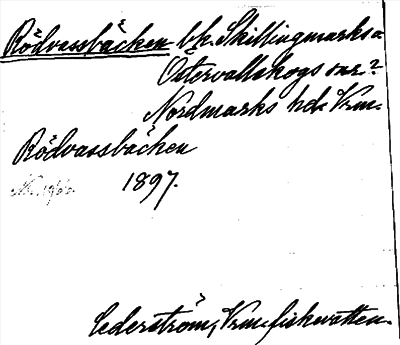 Rödvassbäcken bk. Skillingmarks o.
Östervallskogs snr?
Nordmarks hd. Vrm.
Rödvassbäcken
1897.
Cederström, Vrm. fiskevatten.